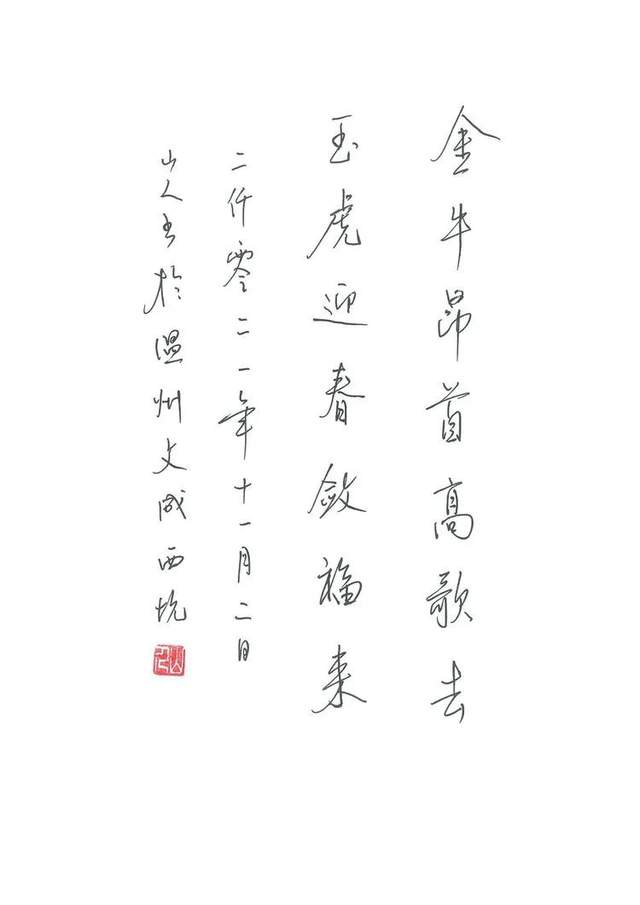 金牛昂首高歌去
玉虎迎春敛福来
二仟零二一年十一月二日
山人书於温州文成西坑
山人